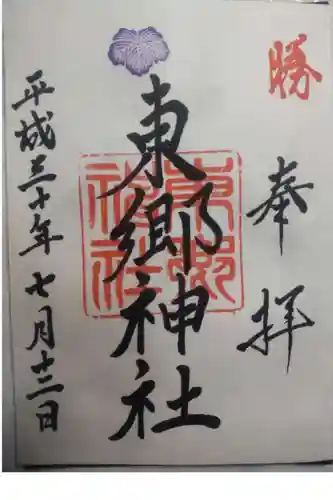 勝
奉拝
東郷神社
東郷
神社
平成三十年七月十二日